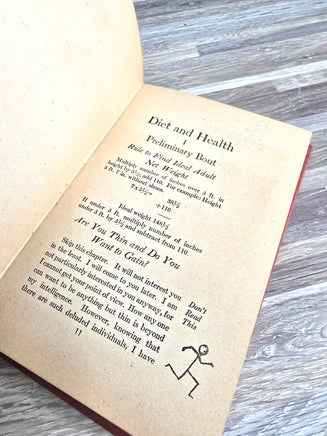 Diet and Health
I
Preliminary Bout
Rule to Find Ideal Adult
Net Weight
Multiply number of inches over 5 ft. in
height by 5½; add 110. For example: Height
5 ft. 7 in. without shoes.
7×5½=
38½
+110
Ideal weight 148½
If under 5 ft. multiply number of inches
under 5 ft. by 5½ and subtract from 110.
Are You Thin and Do You
Want to Gain?
Skip this chapter. It will not interest you
in the least. I will come to you later. I am
not particularly interested in you anyway, for
I cannot get your point of view. How any one
can want to be anything but thin is beyond
my intelligence. However, knowing that
there are such deluded individuals, I have
Don't
Read
This
11